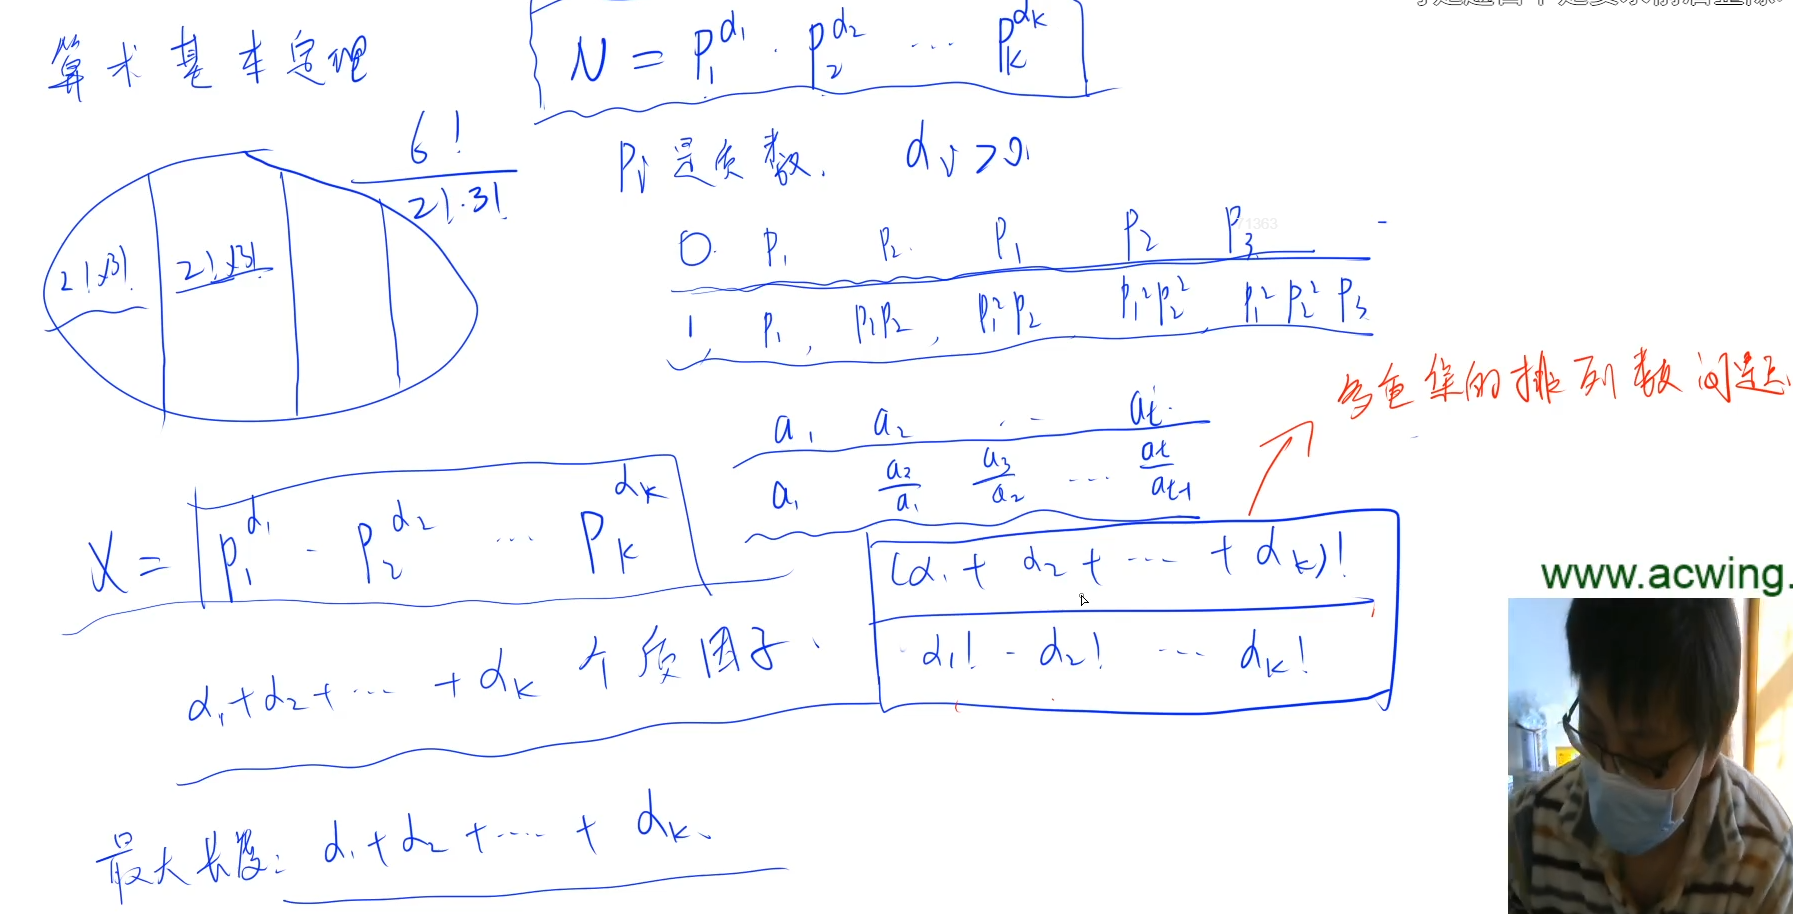 算术基本定理
N = p₁^α₁ · p₂^α₂ ··· pₖ^αₖ
pᵢ是质数. αᵢ>0.
6!
2!·3!
2!×3! 2!×3!
0. p₁ p₂ p₁ p₂ p₃
71363
1, p₁, p₁p₂, p₁²p₂ p₁²p₂², p₁²p₂²p₃
a₁ a₂ ·· aₜ
a₁ a₂/a₁ a₃/a₂ ··· aₜ/aₜ₋₁
多重集的排列数问题
X = p₁^α₁ · p₂^α₂ ··· pₖ^αₖ
(α₁ + α₂ + ··· + αₖ)!
α₁! · α₂! ··· αₖ!
α₁+α₂+··· +αₖ 个质因子、
最大长度: α₁+α₂+···· + αₖ.
www.acwing.